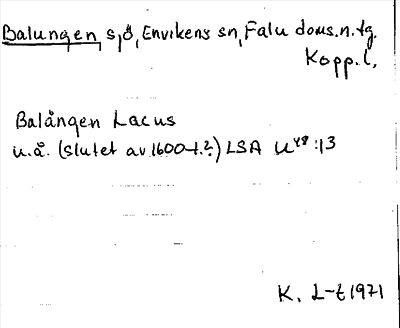 Balungen sjö, Envikens sn, Falu doms.n.tg.
Kopp.l.
Balången Lacus
u.å. (slutet av 1600-t.?) LSA U48:13
K. L-t 1971